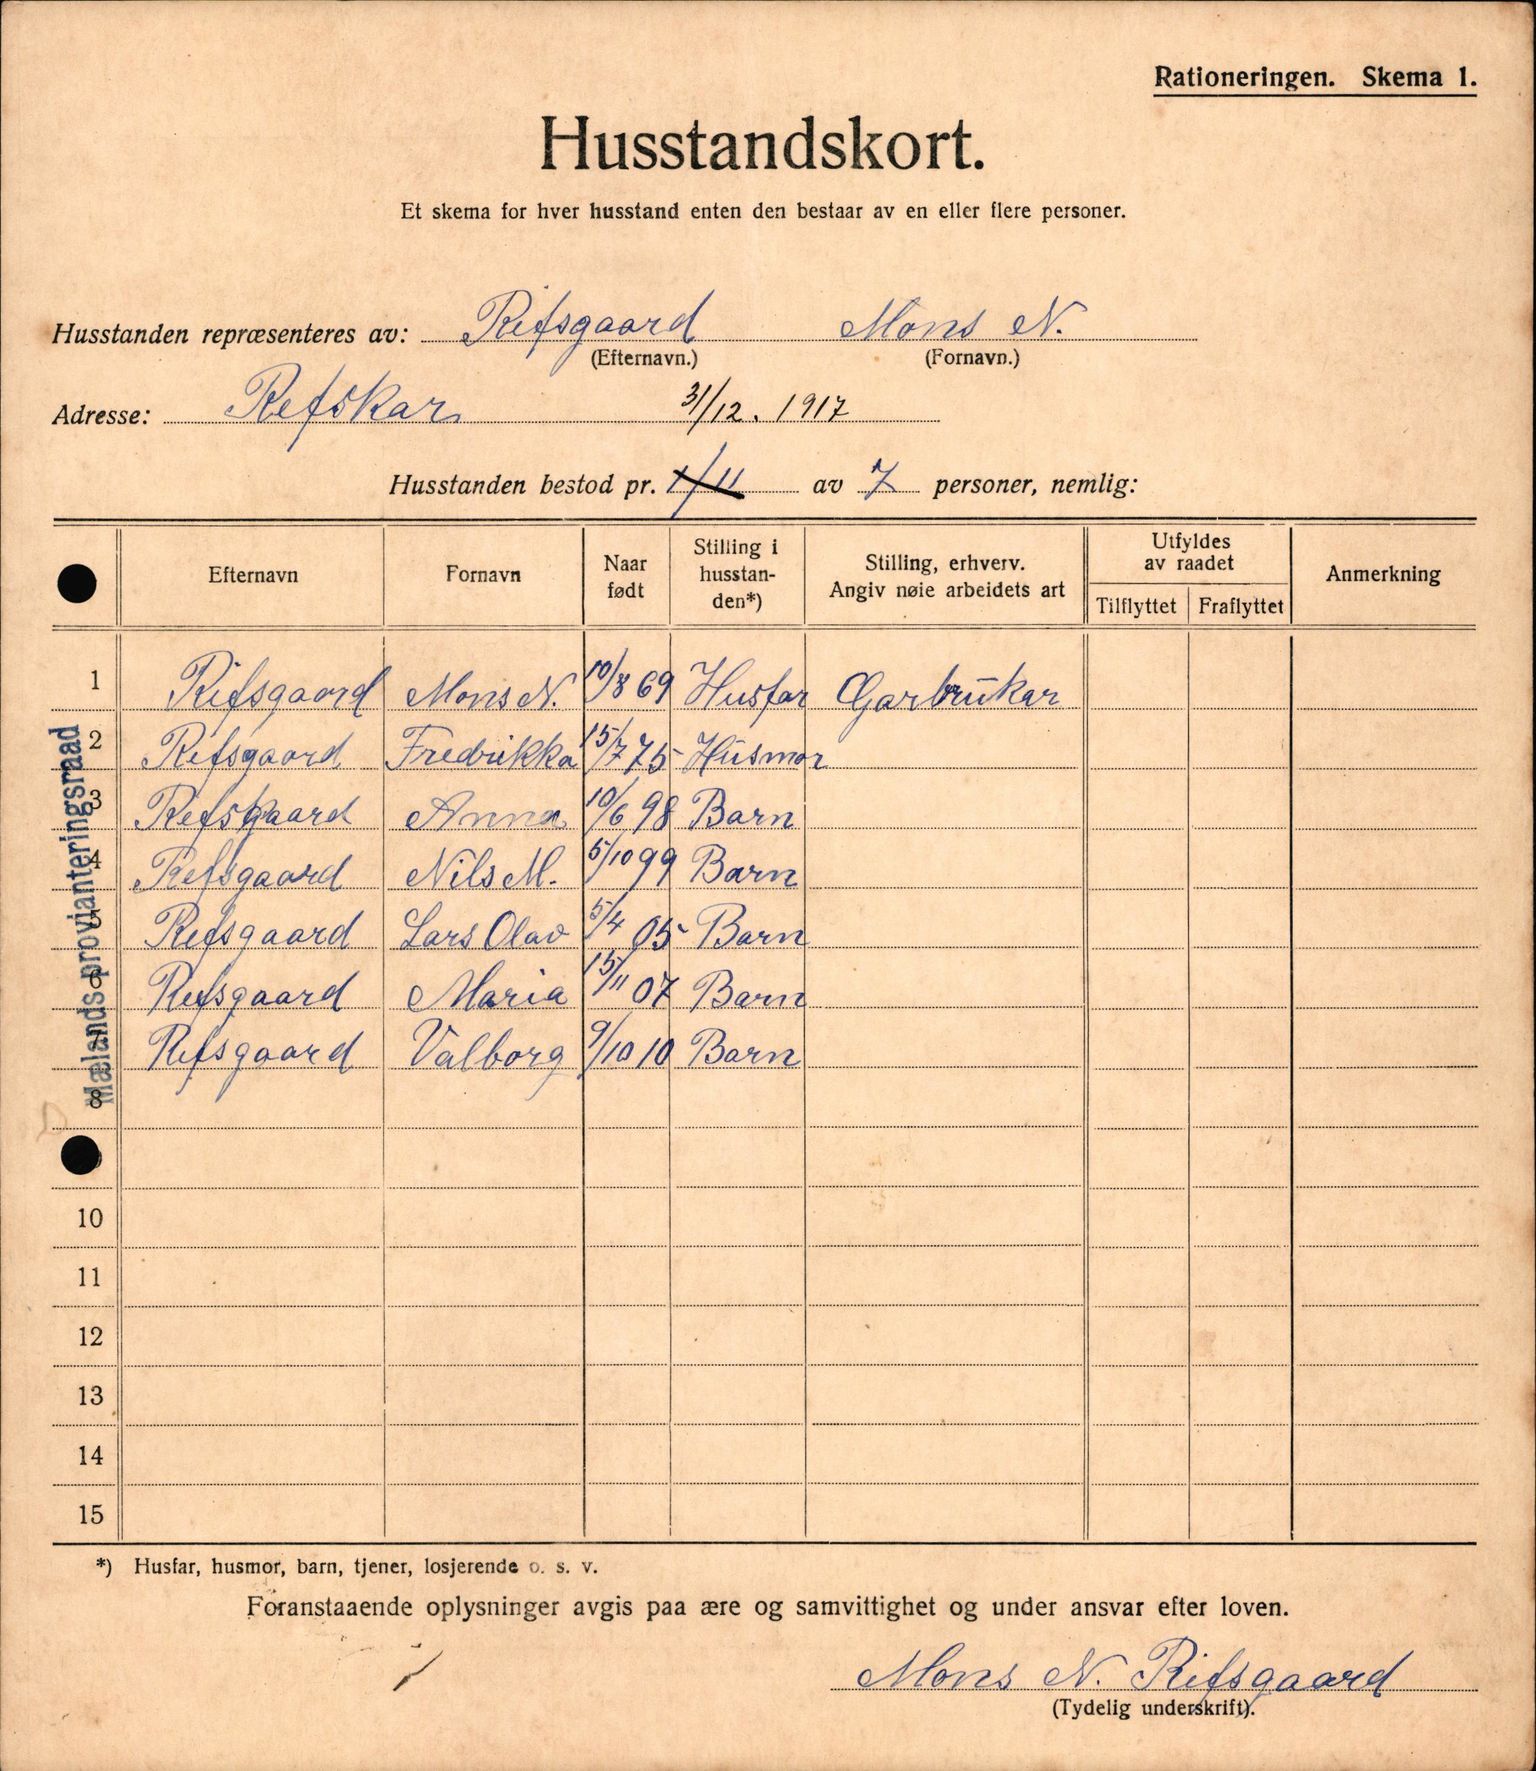 Rationeringen. Skema 1.
Husstandskort.
Et skema for hver husstand enten den bestaar av en eller flere personer.
Husstanden repræsenteres av: Refsgaard Mons N.
(Efternavn.) (Fornavn.)
Adresse: Refskar 31/12. 1917
Husstanden bestod pr. 1/11 av 7 personer, nemlig:
Efternavn Fornavn Naar født Stilling i husstanden*) Stilling, erhverv. Angiv nøie arbeidets art Utfyldes av raadet Tilflyttet Fraflyttet Anmerkning
1 Refsgaard Mons N. 10/8 69 Husfar Garbrukar
2 Refsgaard Fredrikka 15/7 75 Husmor
3 Refsgaard Anna 10/6 98 Barn
4 Refsgaard Nils M. 5/10 99 Barn
5 Refsgaard Lars Olav 5/4 05 Barn
6 Refsgaard Maria 15/11 07 Barn
7 Refsgaard Valborg 9/10 10 Barn
8
10
11
12
13
14
15
Mælands provianteringsraad
*) Husfar, husmor, barn, tjener, losjerende o. s. v.
Foranstaaende oplysninger avgis paa ære og samvittighet og under ansvar efter loven.
Mons N. Refsgaard
(Tydelig underskrift).